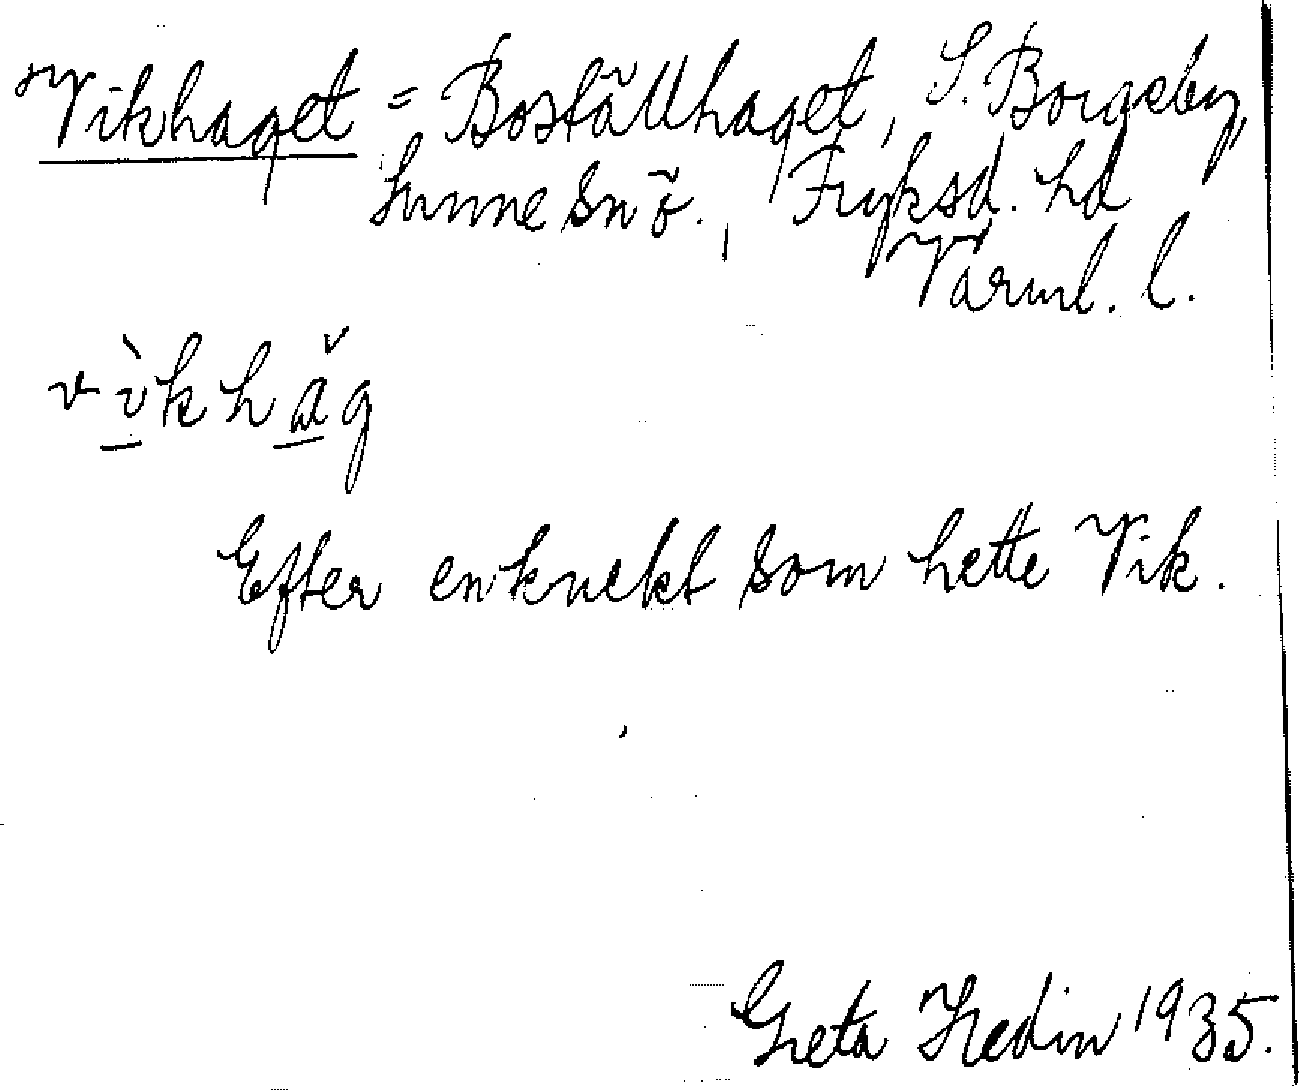 Vikhaget = Boställhaget, S. Borgeby,
Sunne sn ö., Fryksd. hd
Värml. l.
vìkhăg
Efter en knekt som hette Vik.
Greta Hedin 1935.